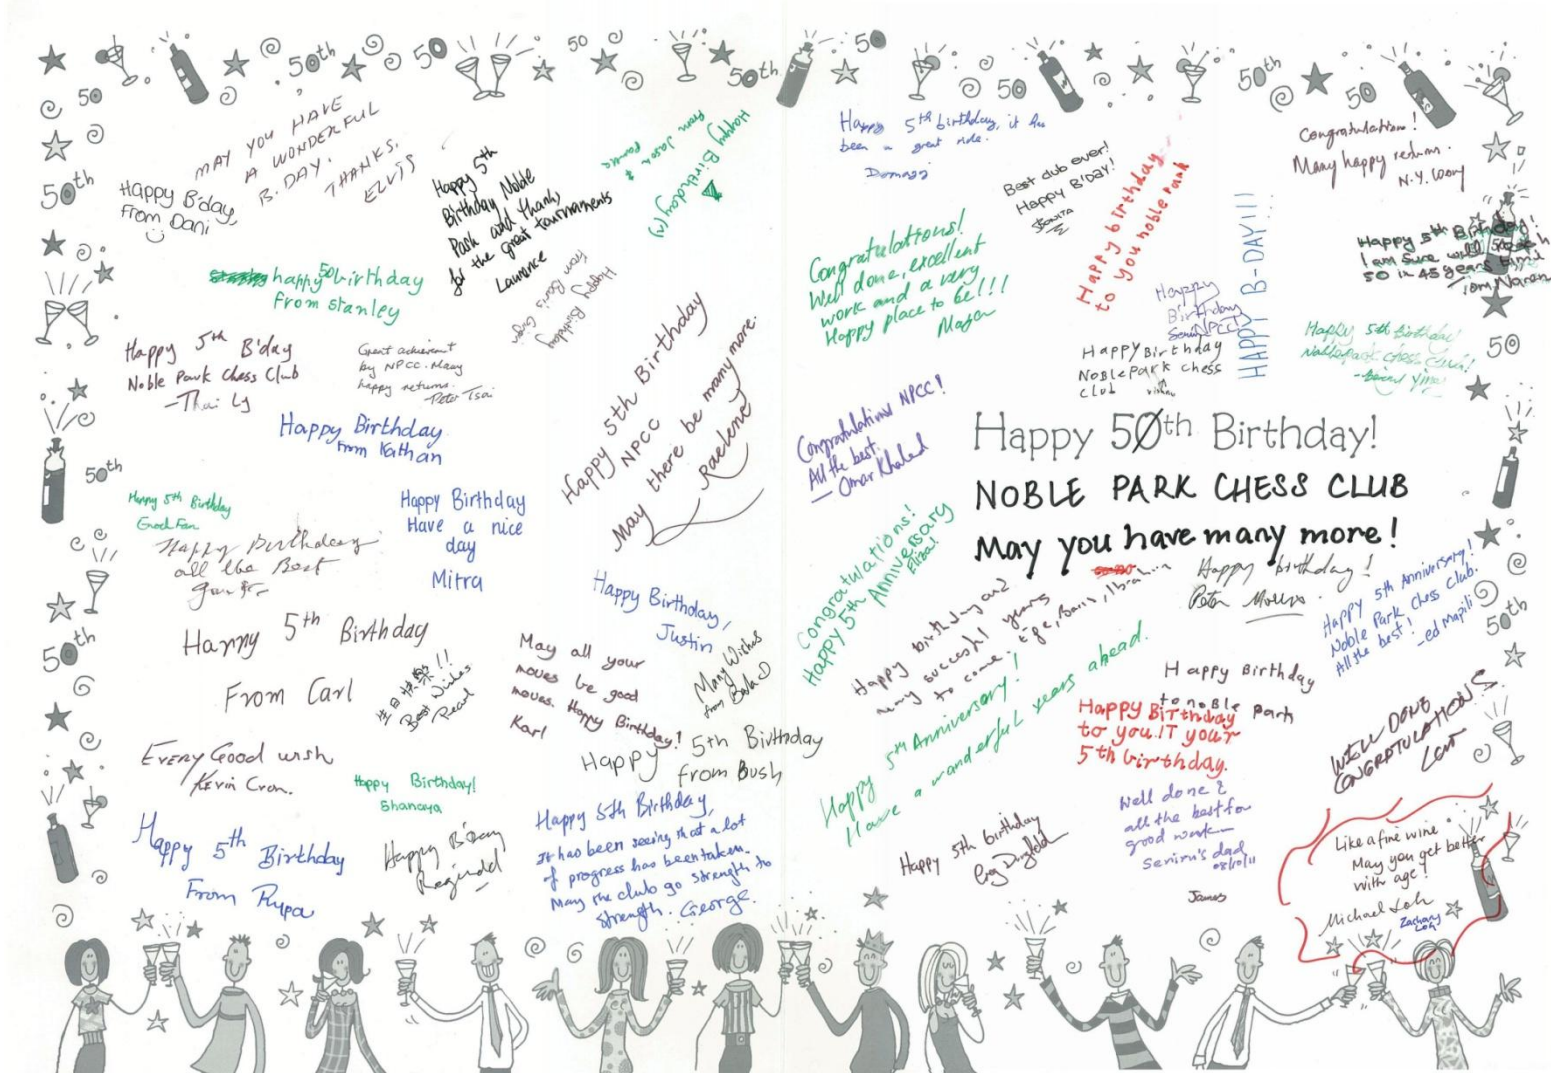 50th
50
50
50th
50
50th
50
50
50th
MAY YOU HAVE
A WONDERFUL
B.DAY.
THANKS.
ELVIS
Happy B'day,
From Dani
Happy 5th
Birthday Noble
Park and thanks
for the great tournaments
Laurence
Happy Birthday (N)
from Jason &
happy 50 birthday
From stanley
Happy Birthday
from Boris
Happy 5th B'day
Noble Park Chess Club
- Thai Ly
Great achievement
by NPCC. Many
happy returns.
- Peter Tsai
Happy Birthday
From Kathan
Happy 5th Birthday
NPCC
May there be many more.
Raelene
50th
Happy 5th Birthday
Enoch Fan
Happy Birthday
all the Best
Happy Birthday
Have a nice
day
Mitra
Happy Birthday,
Justin
50th
Happy 5th Birthday
From Carl
生日快樂!!
Best Wishes
Pearl
May all your
moves be good
moves. Happy Birthday!
Karl
Many Wishes
from Bala D
Every Good wish
Kevin Cron.
Happy Birthday!
Shanaya
Happy 5th Birthday
from Bush
Happy 5th Birthday
From Rupa
Happy B'day
Reginald
Happy 5th Birthday,
It has been seeing that a lot
of progress has been taken.
May the club go strength to
strength. George.
Happy 5th birthday, it has
been a great ride.
Best club ever!
Happy B'DAY!
Happy birthday
to you noble park
HAPPY B-DAY!!!...
Congratulations!
Many happy returns.
N.Y. Wong
Congratulations!
Well done, excellent
work and a very
Happy place to be!!!
Happy
Birthday
NPCC
Happy 5th Birthday!
I am sure will reach
50 in 45 years time
Happy Birthday
Noble Park chess
club
Happy 5th Birthday
Noble park chess club!
50
Congratulations NPCC!
All the best.
- Omar Khaled
Happy 50th Birthday!
NOBLE PARK CHESS CLUB
May you have many more!
Congratulations!
Happy 5th Anniversary
Eliza!
Happy birthday and
many successful years
to come.
Happy birthday!
Peter
Happy 5th Anniversary!
Noble Park Chess Club.
All the best!
- ed Mapili
50th
Happy 5th Anniversary!
Have a wonderful years ahead.
Happy Birthday
to noble park
Happy Birthday
to you. IT your
5th birthday.
WELL DONE
CONGRATULATIONS
Happy 5th birthday
Well done &
all the best for
good work
Seniru's dad
James
Like a fine wine
May you get better
with age!
Michael Loh
Zachary
Loh